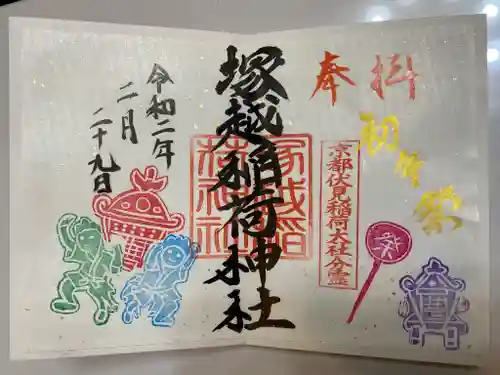 奉拝
初午祭
京都伏見稲荷大社分霊
祭
塚越稲荷神社
塚越稲
荷神社
令和二年
二月
二十九日